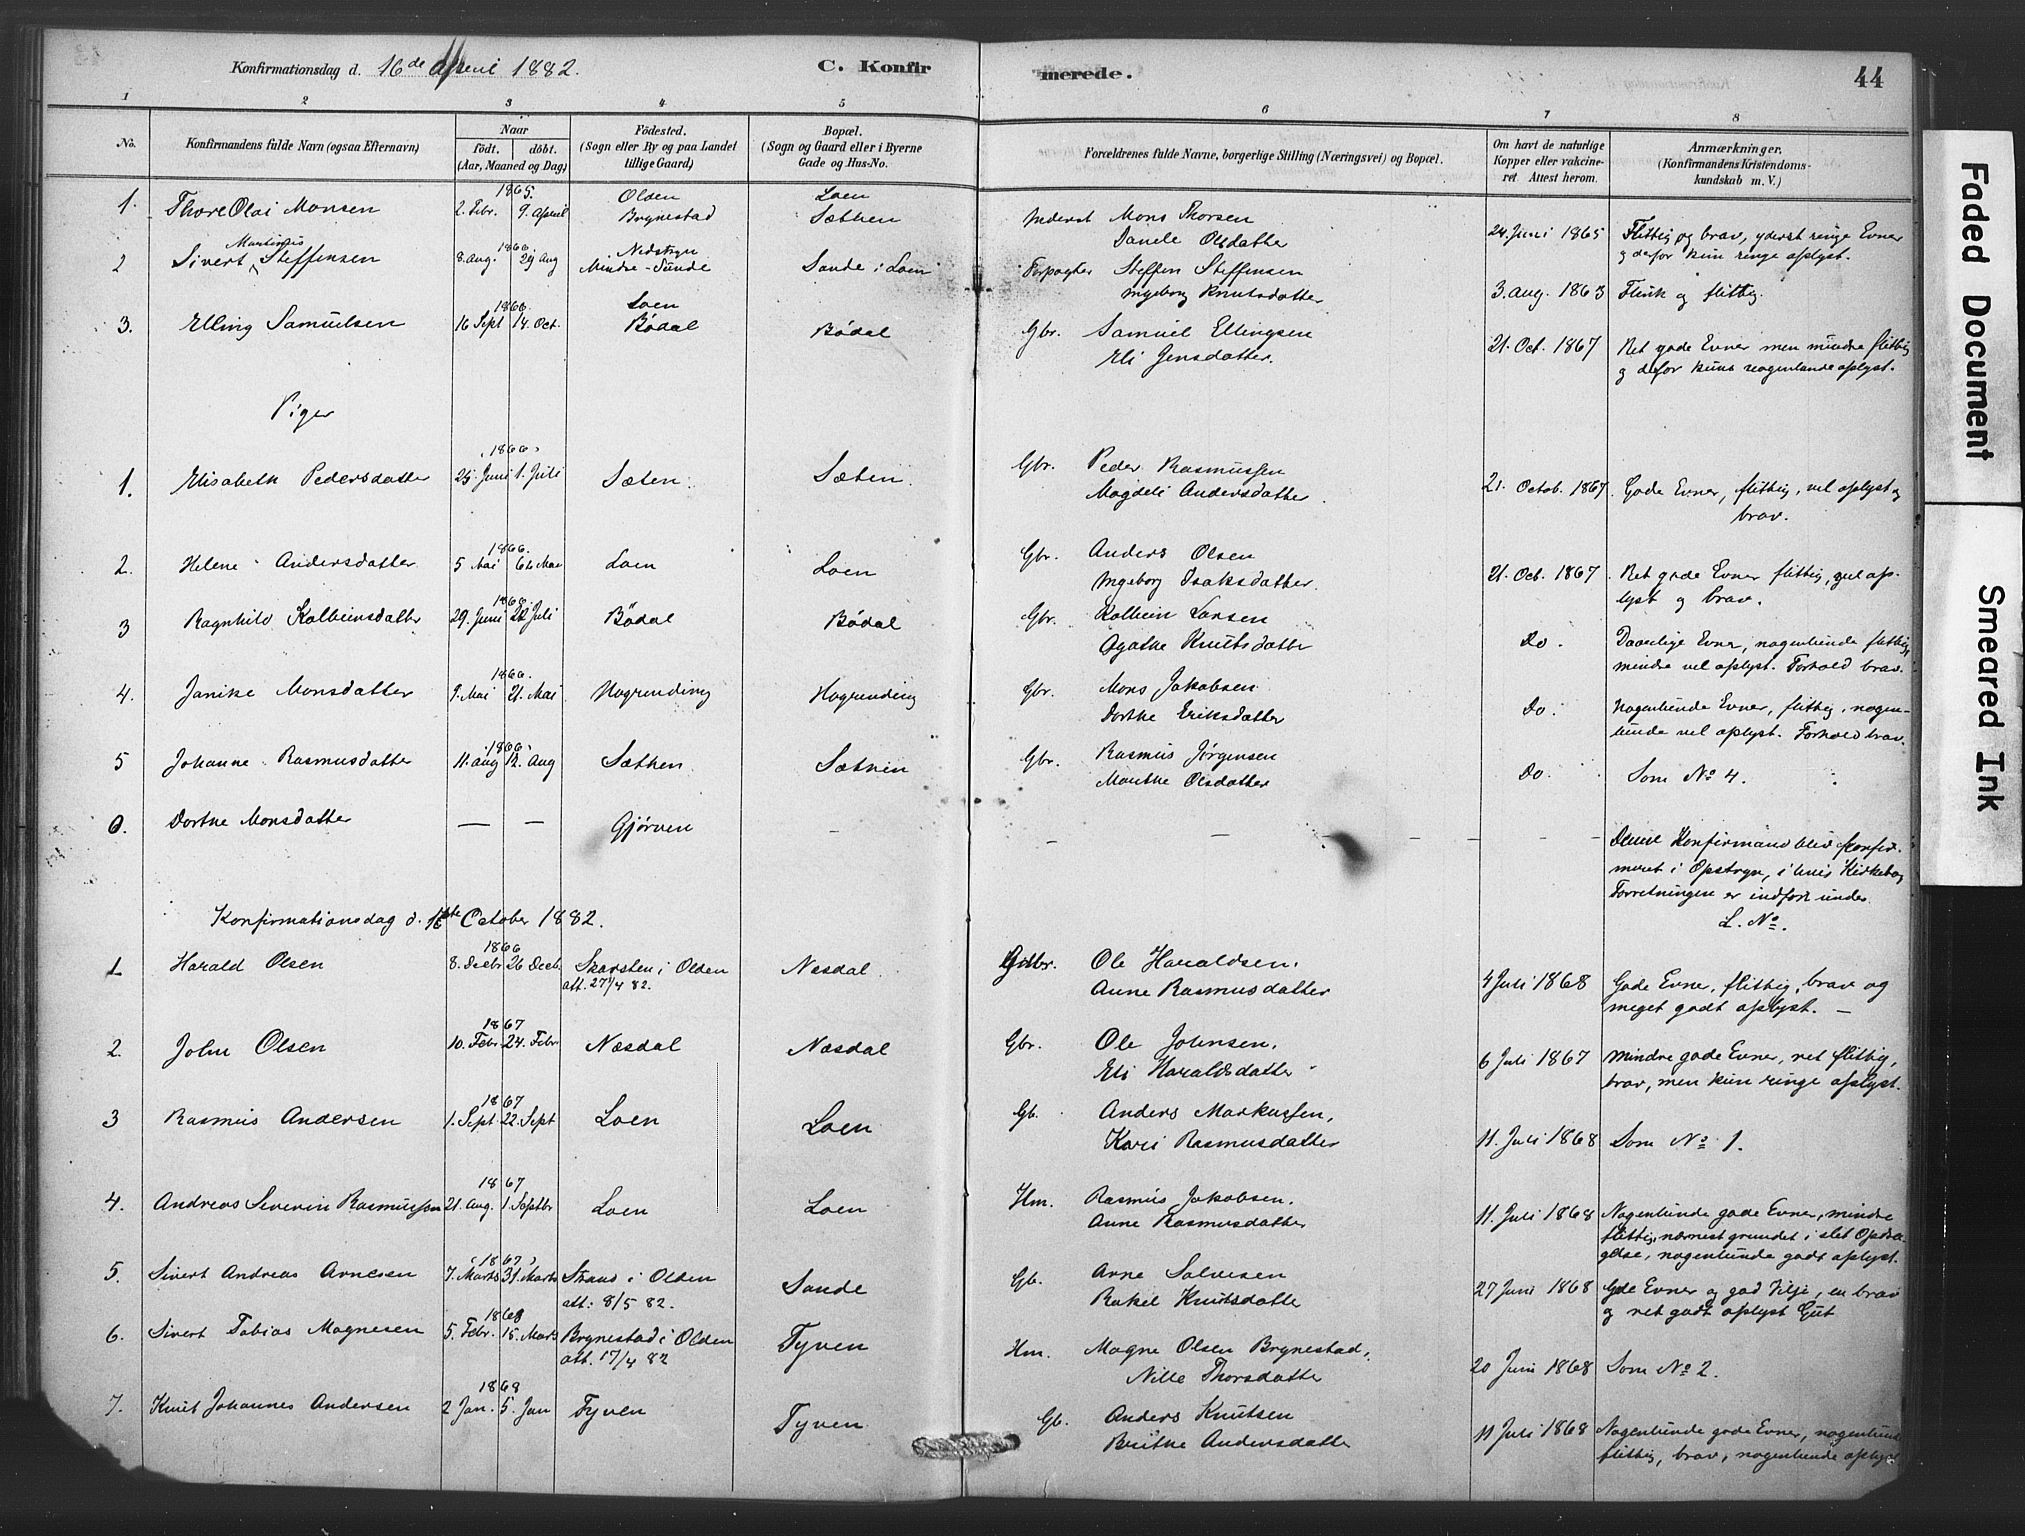 Konfirmationsdag d. 16de April 1882.
C. Konfir
merede.
44
1 2 3 4 5 6 7 8
No.
Konfirmandens fulde Navn (ogsaa Efternavn)
Naar
födt. döbt.
(Aar, Maaned og Dag)
Födested.
(Sogn eller By og paa Landet
tillige Gaard)
Bopæl.
(Sogn og Gaard eller i Byerne
Gade og Hus-No.
Forældrenes fulde Navne, borgerlige Stilling (Næringsvei) og Bopæl.
Om havt de naturlige
Kopper eller vakcine-
ret. Attest herom.
Anmærkninger.
(Konfirmandens Kristendoms-
kundskab m. V.)
1. Thore Olai Monsen 1865. 2. Febr. 9. April Olden Brynestad Loen Sæthen Inderst Mons Thorsen
Danele Olsdatter 24. Juni 1865 Flittig og brav, yderst ringe Evner
og derfor kun ringe oplyst.
2 Sivert Martinus Steffensen 1866 8. Aug. 29 Aug Nedstryn Mindre-Sunde Sande i Loen Forpagter Steffen Steffensen
Ingeborg Knutsdatter 3. Aug. 1863 Flink og flittig.
3. Elling Samuelsen 1866. 16 Sept 14. Oct. Loen Bödal Bödal Gbr. Samuel Ellingsen
Eli Jensdatter. 21. Oct. 1867 Ret gode Evner men mindre flittig
og derfor kuns nogenlunde oplyst.
Piger
1. Elisabeth Pedersdatter 1866 25. Juni 1. Juli Sæten Sæten Gbr. Peder Rasmussen
Magdeli Andersdatter 21. Octob. 1867. Gode Evner, flittig, vel oplyst og
brav.
2. Helene Andersdatter 1866. 5 Mai 6te Mai Loen Loen Gbr. Anders Olsen
Ingeborg Isaksdatter. 21. Oct. 1867 Ret gode Evner flittig, vel op-
lyst og brav.
3 Ragnhild Kolbeinsdatter 29. Juni 22 Juli Bödal Bödal Gbr. Kolbein Larsen
Agathe Knutsdatter Do. Daarlige Evner, nogenlunde flittig,
mindre vel oplyst. Forhold brav.
4. Janike Monsdatter 1866. 9. Mai 21. Mai Hogrending Hogrending Gbr. Mons Jakobsen
Dorthe Eriksdatter Do. Nogenlunde Evner, flittig, nogen-
lunde vel oplyst. Forhold brav.
5 Johanne Rasmusdatter 1866 11. Aug 12. Aug Sæthen Sæthen Gbr. Rasmus Jörgensen
Marithe Olsdatter Do. Som No 4.
6. Dorthe Monsdatter — — Gjörven – – – – –
Denne Konfirmand blev konfir-
meret i Opstryn, i hvis Kirkebog
Forretningen er indfört under
L. No.
Konfirmationsdag d. October 1882.
1 Harald Olsen 1866 8. Decbr 26 Decb. Skarsten i Olden
att. 27/4 82. Næsdal Gdbr. Ole Haraldsen.
Anne Rasmusdatter 4 Juli 1868 Gode Evner, flittig, brav og
meget godt oplyst. —
2. John Olsen 1867 10. Febr. 24. Febr Næsdal Næsdal Gbr. Ole Johnsen.
Eli Haraldsdatter 6 Juli 1867 Mindre gode Evner, ret flittig,
brav, men kun ringe oplyst.
3 Rasmus Andersen 1867 1. Sept 22. Sept Loen Loen Gb. Anders Markussen,
Kari Rasmusdatter 11. Juli 1868 Som No 1.
4. Andreas Severin Rasmussen 1867 21. Aug. 1. Septbr Loen Loen Hm. Rasmus Jakobsen.
Anne Rasmusdatter 11. Juli 1868 Nogenlunde gode Evner, mindre
flittig, nærmest grundet i slet Opdra-
gelse, nogenlunde godt oplyst.
5. Sivert Andreas Arnesen 1867 7. Marts 31. Marts i Olden
att: 8/5 82. Sande Gb. Arne Salvesen
Rakel Knutsdatter 27 Juni 1868 Gode Evner og god Vilje, en brav
og ret godt oplyst Gut
6. Sivert Tobias Magnesen 1868 5. Febr. 15. Marts Brynestad i Olden
att. 17/4 82 Tyven Hm. Magne Olsen Brynestad,
Nille Thorsdatter 20 Juni 1868 Som No 2.
7. Knut Johannes Andersen 1868 2 Jan. 5. Jan Tyven Tyven Gb. Anders Knutsen
Brithe Andersdatter 11 Juli 1868 Nogenlunde gode Evner, nogenlunde
flittig, brav, nogenlunde oplyst
Faded Document
Smeared Ink